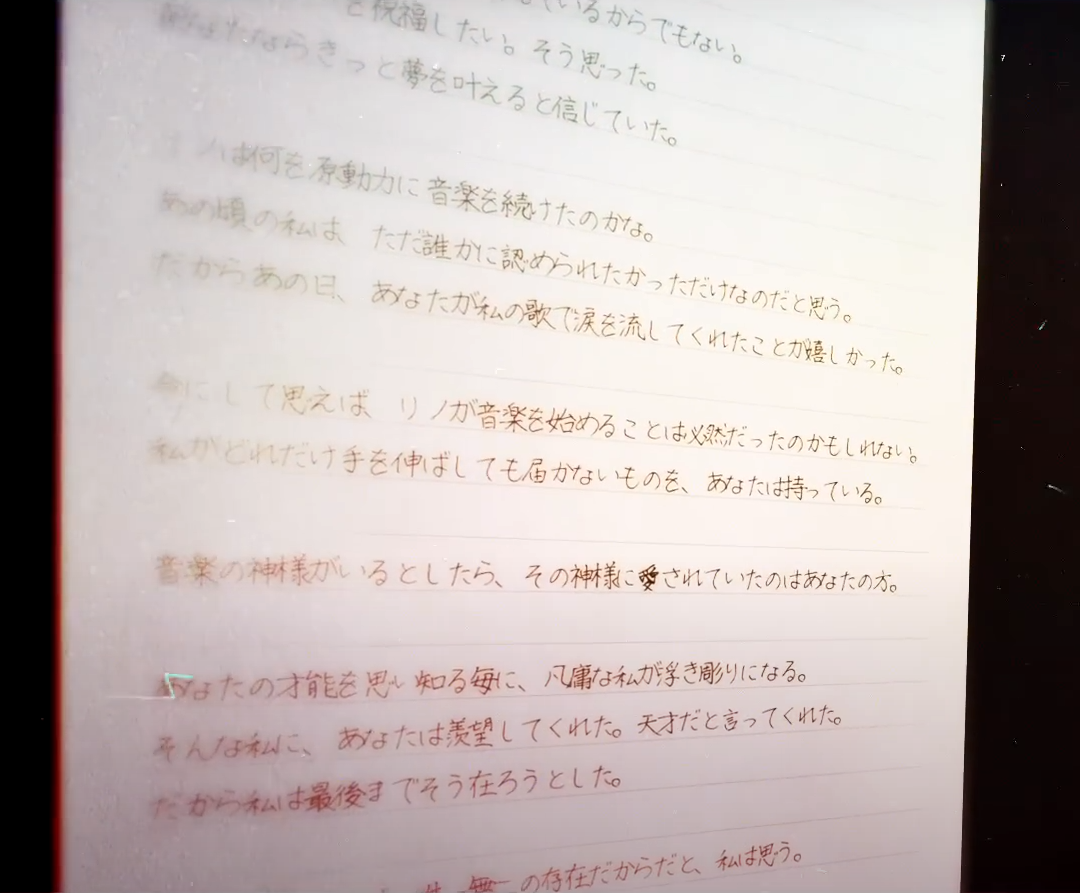 ているからでもない。
と祝福したい。そう思った。
あなたならきっと夢を叶えると信じていた。
は何を原動力に音楽を続けたのかな。
あの頃の私は、ただ誰かに認められたかっただけなのだと思う。
だからあの日、あなたが私の歌で涙を流してくれたことが嬉しかった。
今にして思えば、リノが音楽を始めることは必然だったのかもしれない。
私がどれだけ手を伸ばしても届かないものを、あなたは持っている。
音楽の神様がいるとしたら、その神様に愛されていたのはあなたの方。
あなたの才能を思い知る毎に、凡庸な私が浮き彫りになる。
そんな私に、あなたは羨望してくれた。天才だと言ってくれた。
だから私は最後までそう在ろうとした。
の存在だからだと、私は思う。